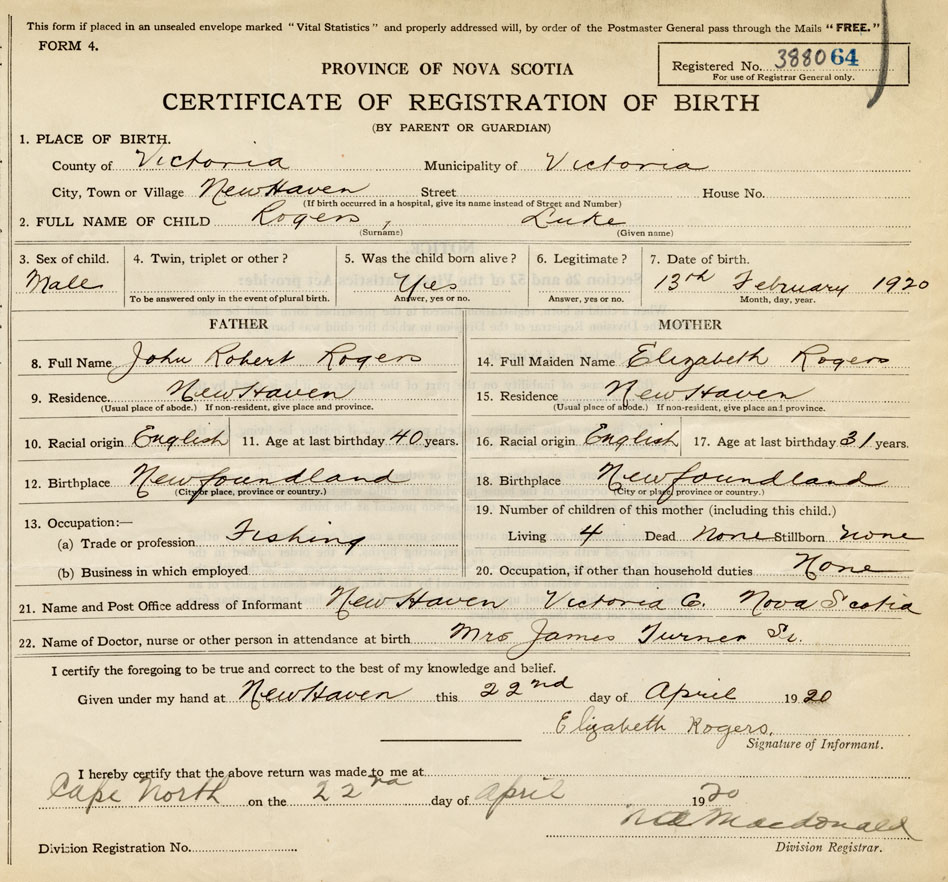 This form if placed in an unsealed envelope marked "Vital Statistics" and properly addressed will, by order of the Postmaster General pass through the Mails "FREE."
FORM 4.
Registered No. 388064
For use of Registrar General only.
PROVINCE OF NOVA SCOTIA
CERTIFICATE OF REGISTRATION OF BIRTH
(BY PARENT OR GUARDIAN)
1. PLACE OF BIRTH.
County of Victoria Municipality of Victoria
City, Town or Village New Haven Street House No.
(If birth occurred in a hospital, give its name instead of Street and Number)
2. FULL NAME OF CHILD Rogers, Luke
(Surname) (Given name)
3. Sex of child. 4. Twin, triplet or other? 5. Was the child born alive? 6. Legitimate? 7. Date of birth.
Male Yes 13th February 1920
To be answered only in the event of plural birth. Answer, yes or no. Answer, yes or no. Month, day, year.
FATHER MOTHER
8. Full Name John Robert Rogers 14. Full Maiden Name Elizabeth Rogers
9. Residence. New Haven 15. Residence New Haven
(Usual place of abode.) If non-resident, give place and province. (Usual place of abode.) If non-resident, give place and province.
10. Racial origin English 11. Age at last birthday 40 years. 16. Racial origin English 17. Age at last birthday 31 years.
12. Birthplace Newfoundland 18. Birthplace Newfoundland
(City or place, province or country.) (City or place, province or country.)
13. Occupation:— 19. Number of children of this mother (including this child.)
(a) Trade or profession Fishing Living 4 Dead None Stillborn none
(b) Business in which employed 20. Occupation, if other than household duties None
21. Name and Post Office address of Informant New Haven Victoria C. Nova Scotia
22. Name of Doctor, nurse or other person in attendance at birth Mrs James Turner Sr.
I certify the foregoing to be true and correct to the best of my knowledge and belief.
Given under my hand at New Haven this 22nd day of April 1920
Elizabeth Rogers.
Signature of Informant.
I hereby certify that the above return was made to me at
Cape North on the 22nd day of April 1920
Macdonald
Division Registration No. Division Registrar.